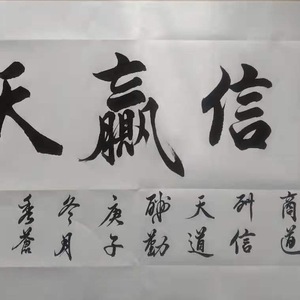 信贏天
商道
酬信
天道
酬勤
庚子
冬月